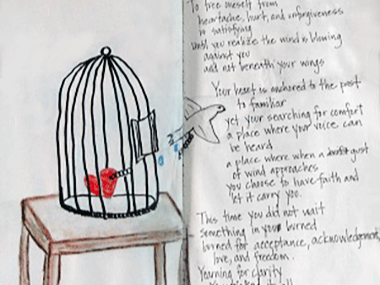 To free meself from
heartache, hurt, and unforgiveness
is satisfying
until you realize the wind is blowing
against you
and not beneath your wings
Your heart is anchored to the past
to familiar
yet your searching for comfort
a place where your voice can
be heard
a place where when a gust
of wind approaches
you choose to have faith and
let it carry you.
This time you did not wait
something in you burned
burned for acceptance, acknowledgement,
love, and freedom.
Yearning for clarity